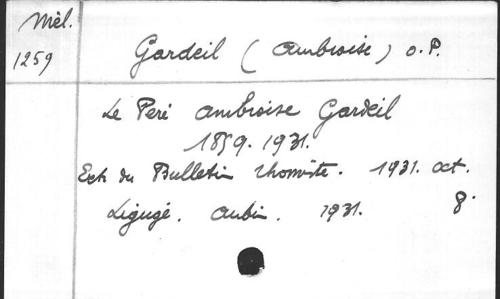 Mèl.
1259
Gardeil (Ambroise) O.P.
Le Père Ambroise Gardeil
1859-1931.
Ext. du Bulletin thomiste. 1931. oct.
Ligugé. Aubin. 1931. 8°